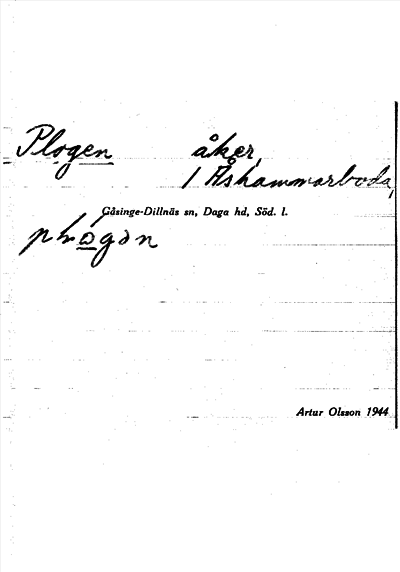 Plogen åker,
1 Åshammarboda,
Gåsinge-Dillnäs sn, Daga hd, Söd. l.
Artur Olsson 1944